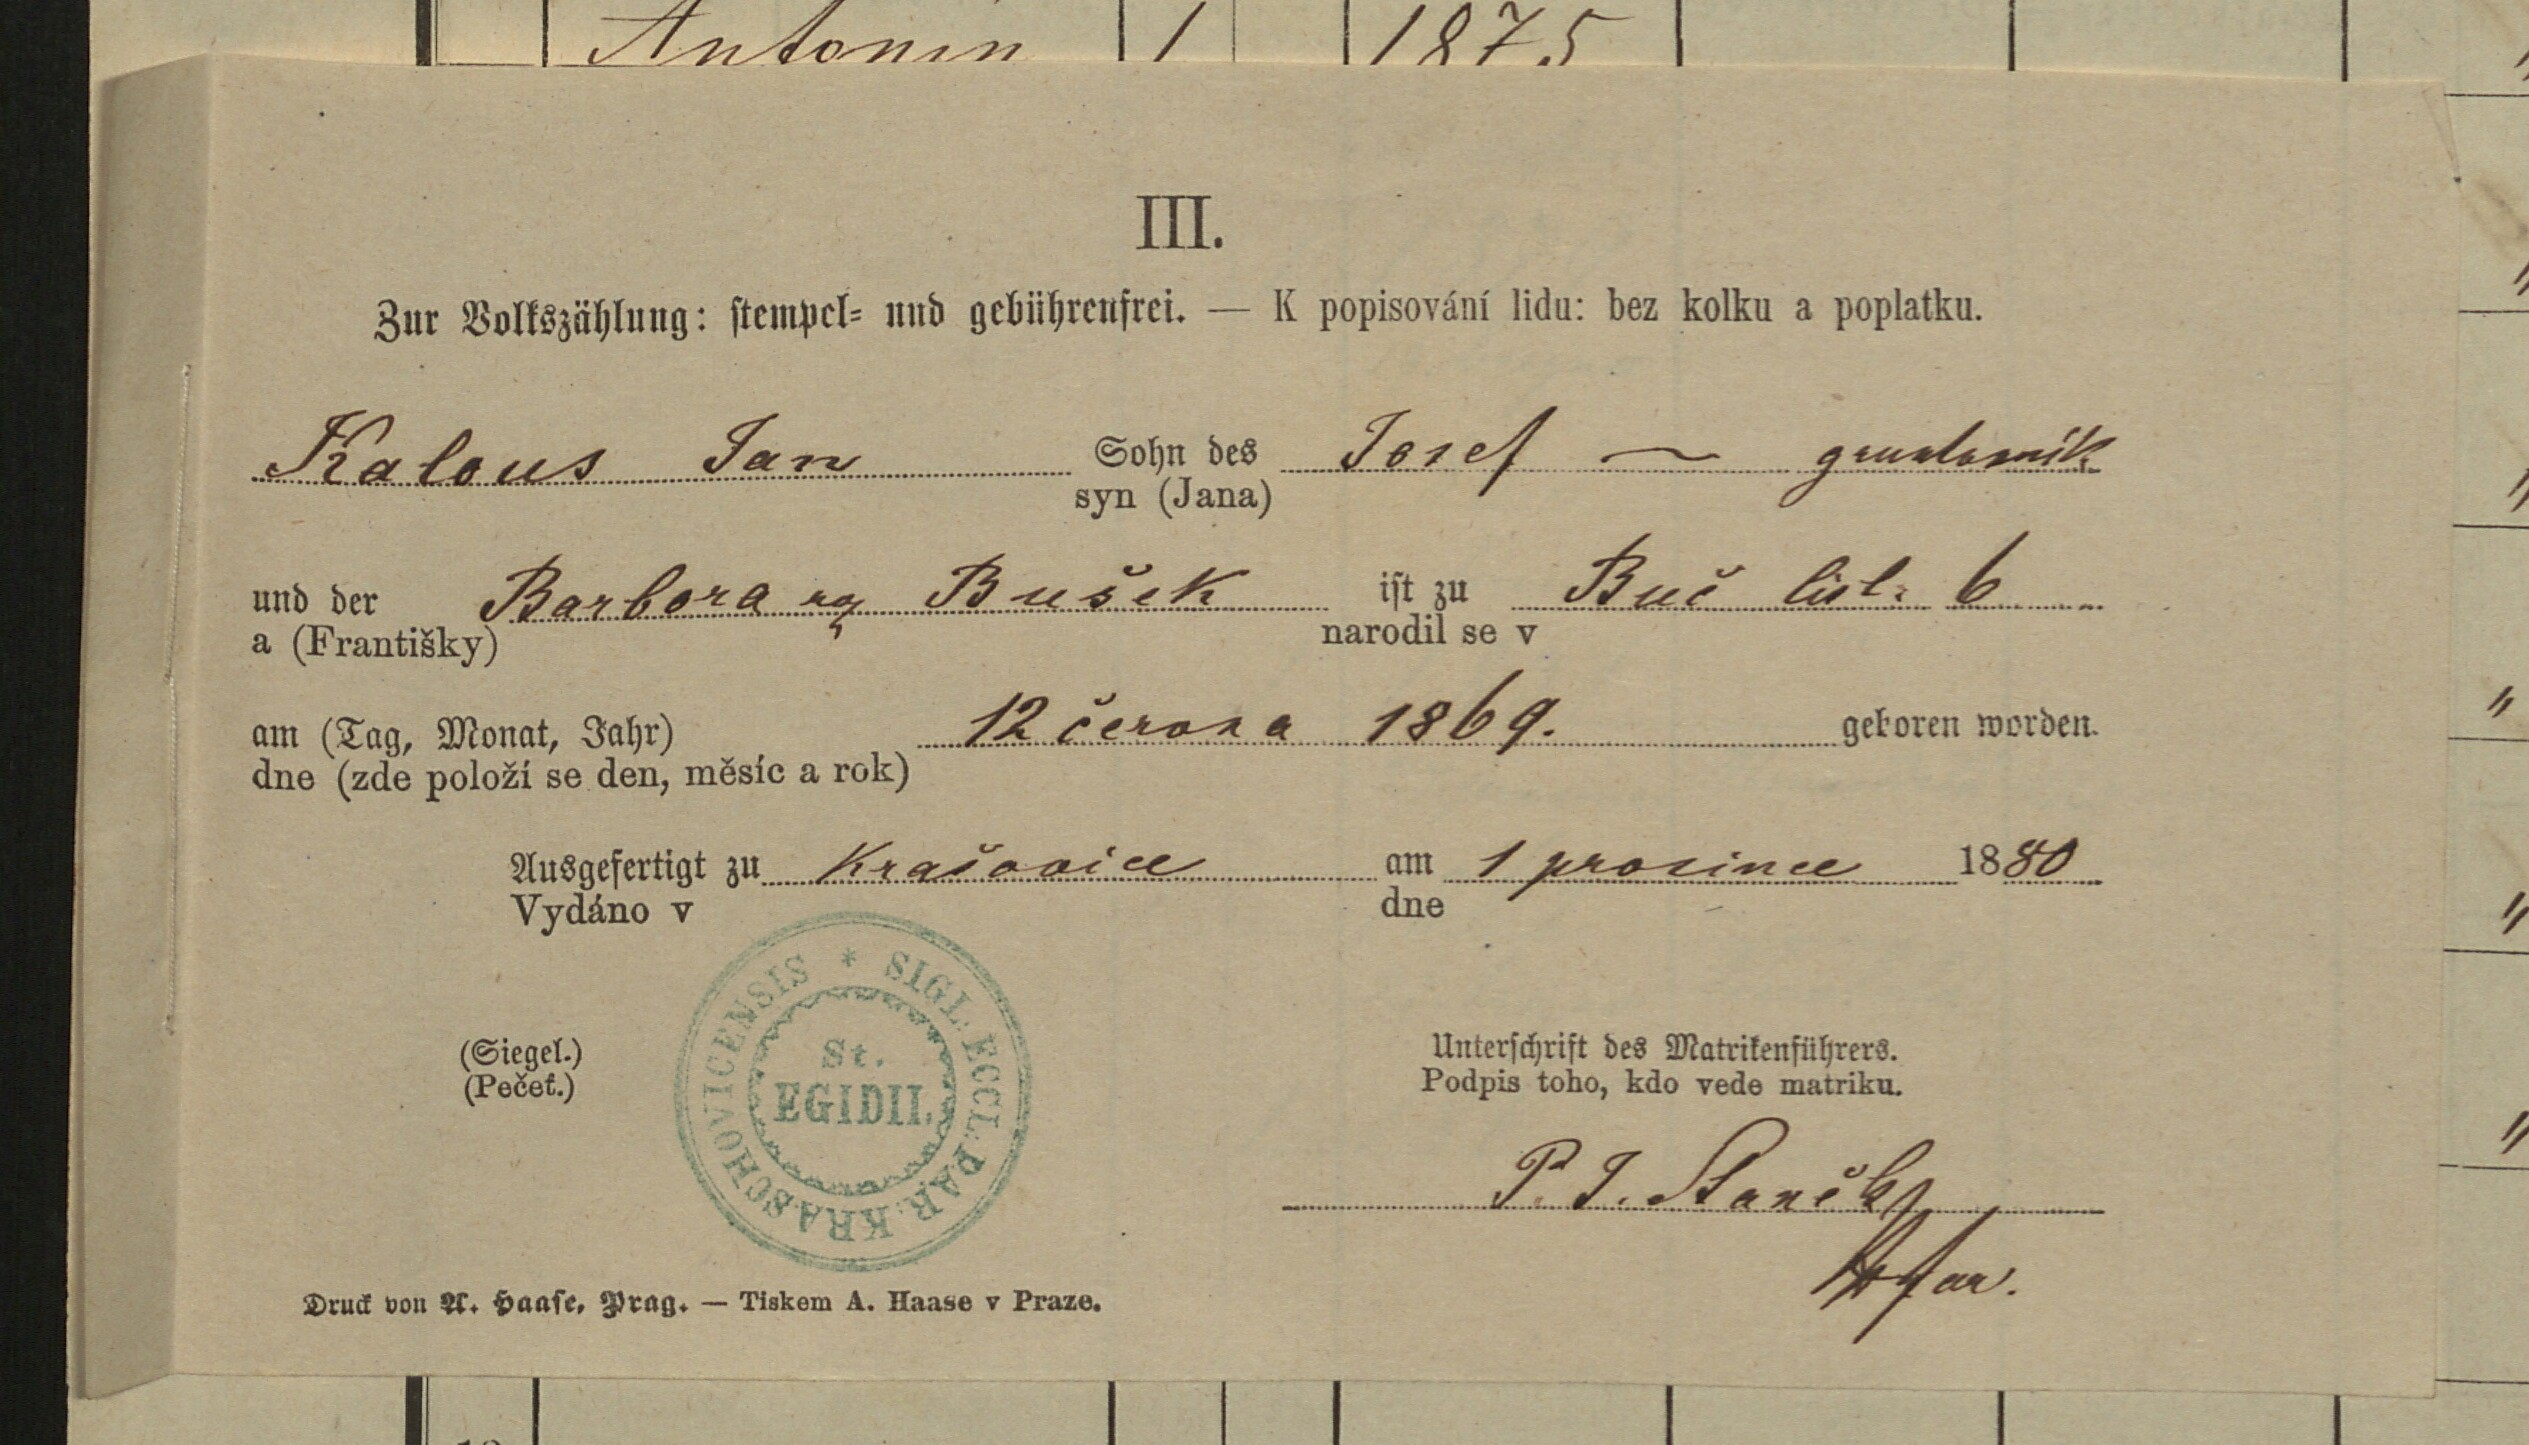 Antonín 1 1875
III.
Zur Volkszählung: stempel= und gebührenfrei. — K popisování lidu: bez kolku a poplatku.
Kalous Jan Sohn des Josef —
syn (Jana)
und der Barbora Bušek ist zu Buč 6
a (Františky) narodil se v
am (Tag, Monat, Jahr) 12 června 1869. geboren worden.
dne (zde položí se den, měsíc a rok)
Ausgefertigt zu Krašovice am 1 prosince 1880
Vydáno v dne
SIGL. ECCL. PAR. KRASCHOVICENSIS *
St.
EGIDII.
(Siegel.)
(Pečeť.)
Unterschrift des Matrikenführers.
Podpis toho, kdo vede matriku.
P. J.
Druck von A. Haase, Prag. — Tiskem A. Haase v Praze.